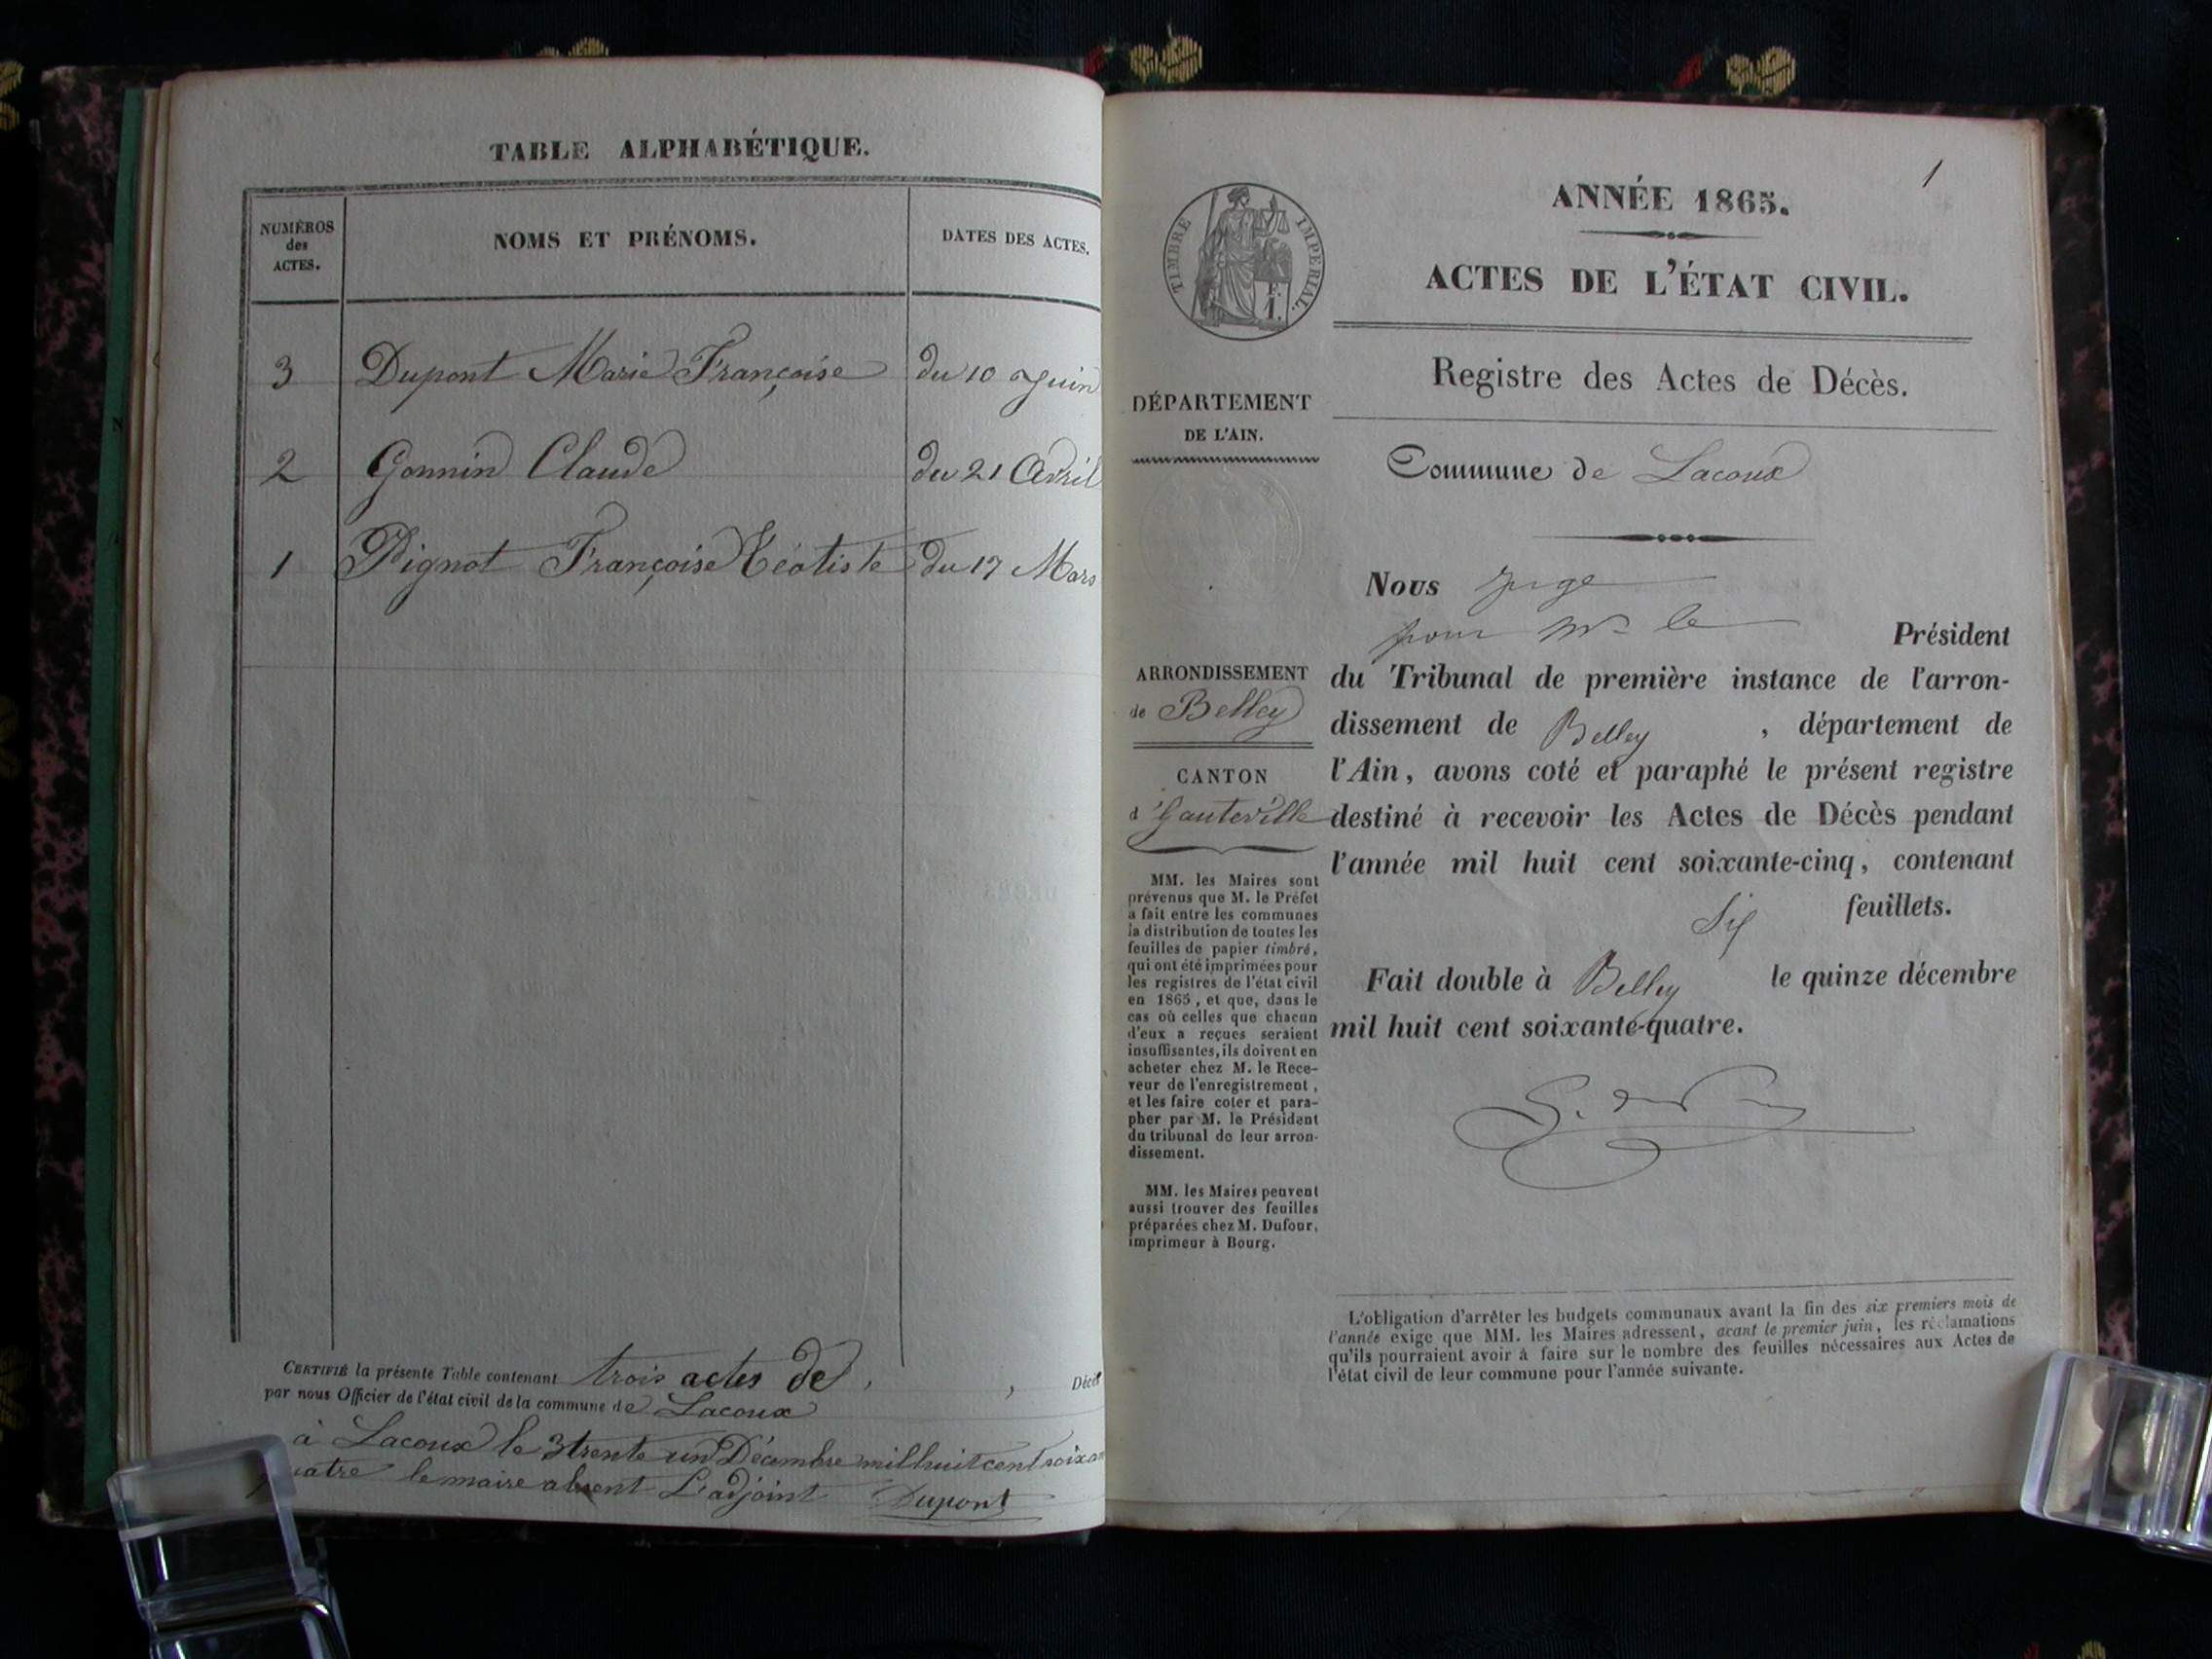 TABLE ALPHABÉTIQUE.
NUMÉROS
des
ACTES.
NOMS ET PRÉNOMS.
DATES DES ACTES.
3 Dupont Marie Françoise du 10 Juin
2 Gonnin Claude du 21 Avril
1 Pignot Françoise Téotiste du 17 Mars
CERTIFIÉ la présente Table contenant trois actes de , , Décès
par nous Officier de l'état civil de la commune de Lacoux
à Lacoux le 31 trente un Décembre mil huit cent soixan
quatre le maire absent L'adjoint Dupont
1
TIMBRE IMPERIAL.
1.
ANNÉE 1865.
ACTES DE L'ÉTAT CIVIL.
Registre des Actes de Décès.
Commune de Lacoux
DÉPARTEMENT
DE L'AIN.
ARRONDISSEMENT
de Belley
CANTON
d'hauteville
MM. les Maires sont
prévenus que M. le Préfet
a fait entre les communes
la distribution de toutes les
feuilles de papier timbré,
qui ont été imprimées pour
les registres de l'état civil
en 1865, et que, dans le
cas où celles que chacun
d'eux a reçues seraient
insuffisantes, ils doivent en
acheter chez M. le Rece-
veur de l'enregistrement,
et les faire coter et para-
pher par M. le Président
du tribunal de leur arron-
dissement.
MM. les Maires peuvent
aussi trouver des feuilles
préparées chez M. Dufour,
imprimeur à Bourg.
Nous juge
pour Mr le Président
du Tribunal de première instance de l'arron-
dissement de Belley , département de
l'Ain, avons coté et paraphé le présent registre
destiné à recevoir les Actes de Décès pendant
l'année mil huit cent soixante-cinq, contenant
Six feuillets.
Fait double à Belley le quinze décembre
mil huit cent soixante-quatre.
L'obligation d'arrêter les budgets communaux avant la fin des six premiers mois de
l'année exige que MM. les Maires adressent, avant le premier juin, les réclamations
qu'ils pourraient avoir à faire sur le nombre des feuilles nécessaires aux Actes de
l'état civil de leur commune pour l'année suivante.